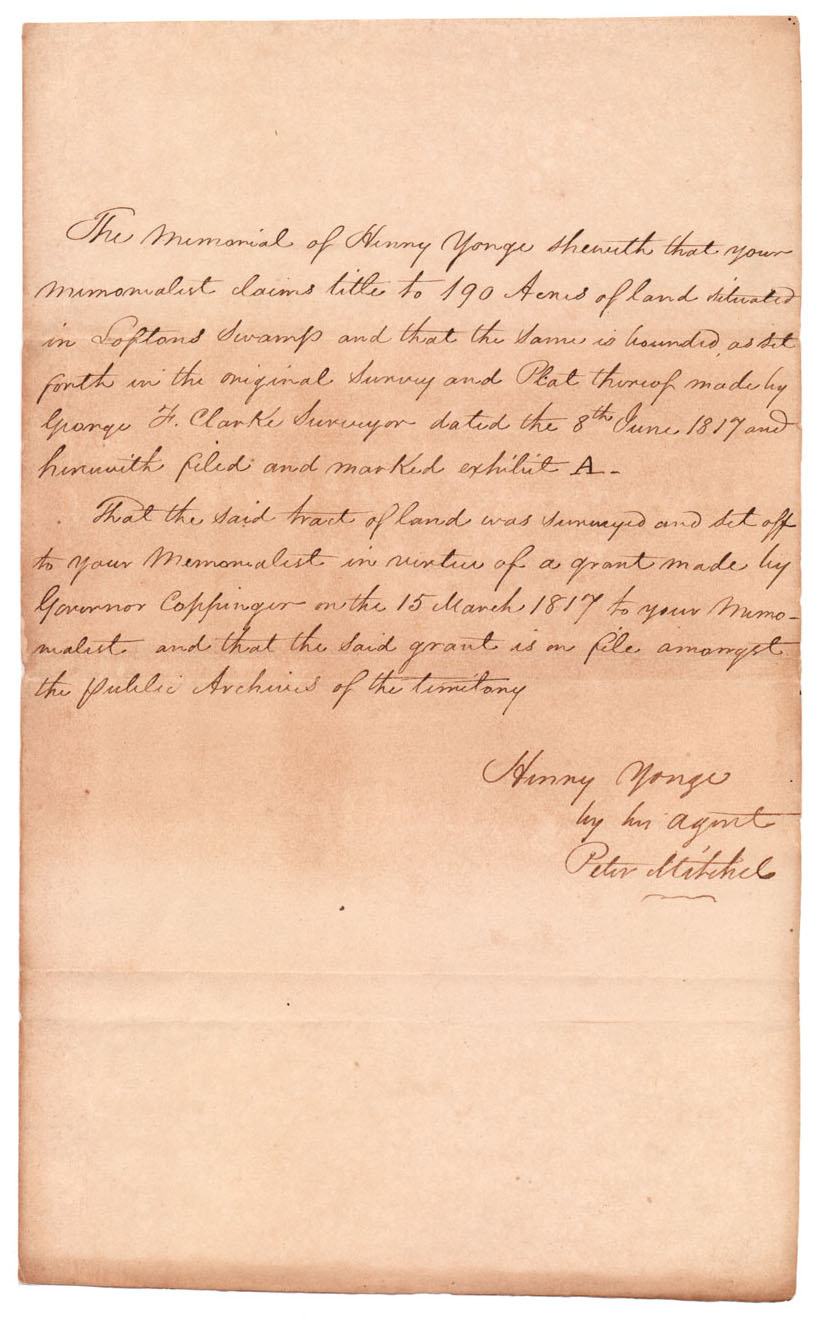 The Memorial of Henry Yonge sheweth that your
memorialist claims title to 190 Acres of land situated
in Loftons Swamp and that the same is bounded, as set
forth in the original Survey and Plat thereof made by
George F. Clarke Surveyor dated the 8th June 1817 and
herewith filed and marked exhibit A -
That the said tract of land was surveyed and set off
to your Memorialist in virtue of a grant made by
Governor Coppinger on the 15 March 1817 to your Memo-
rialist and that the said grant is on file amongst
the public Archives of the territory
Henry Yonge
by his agent
Peter Mitchel